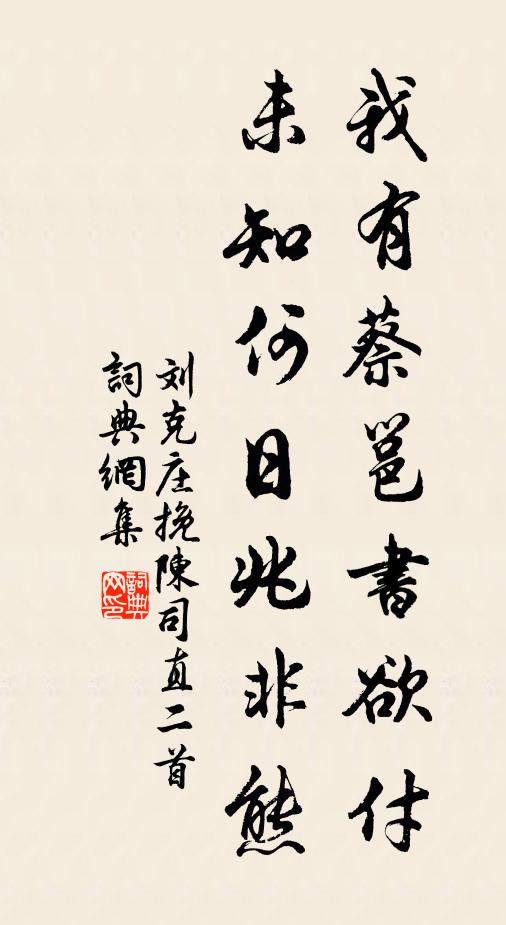 我有蔡邕書欲付
未知何日兆非熊
刘克庄挽陳司直二首
詞典網集
詞典
网印